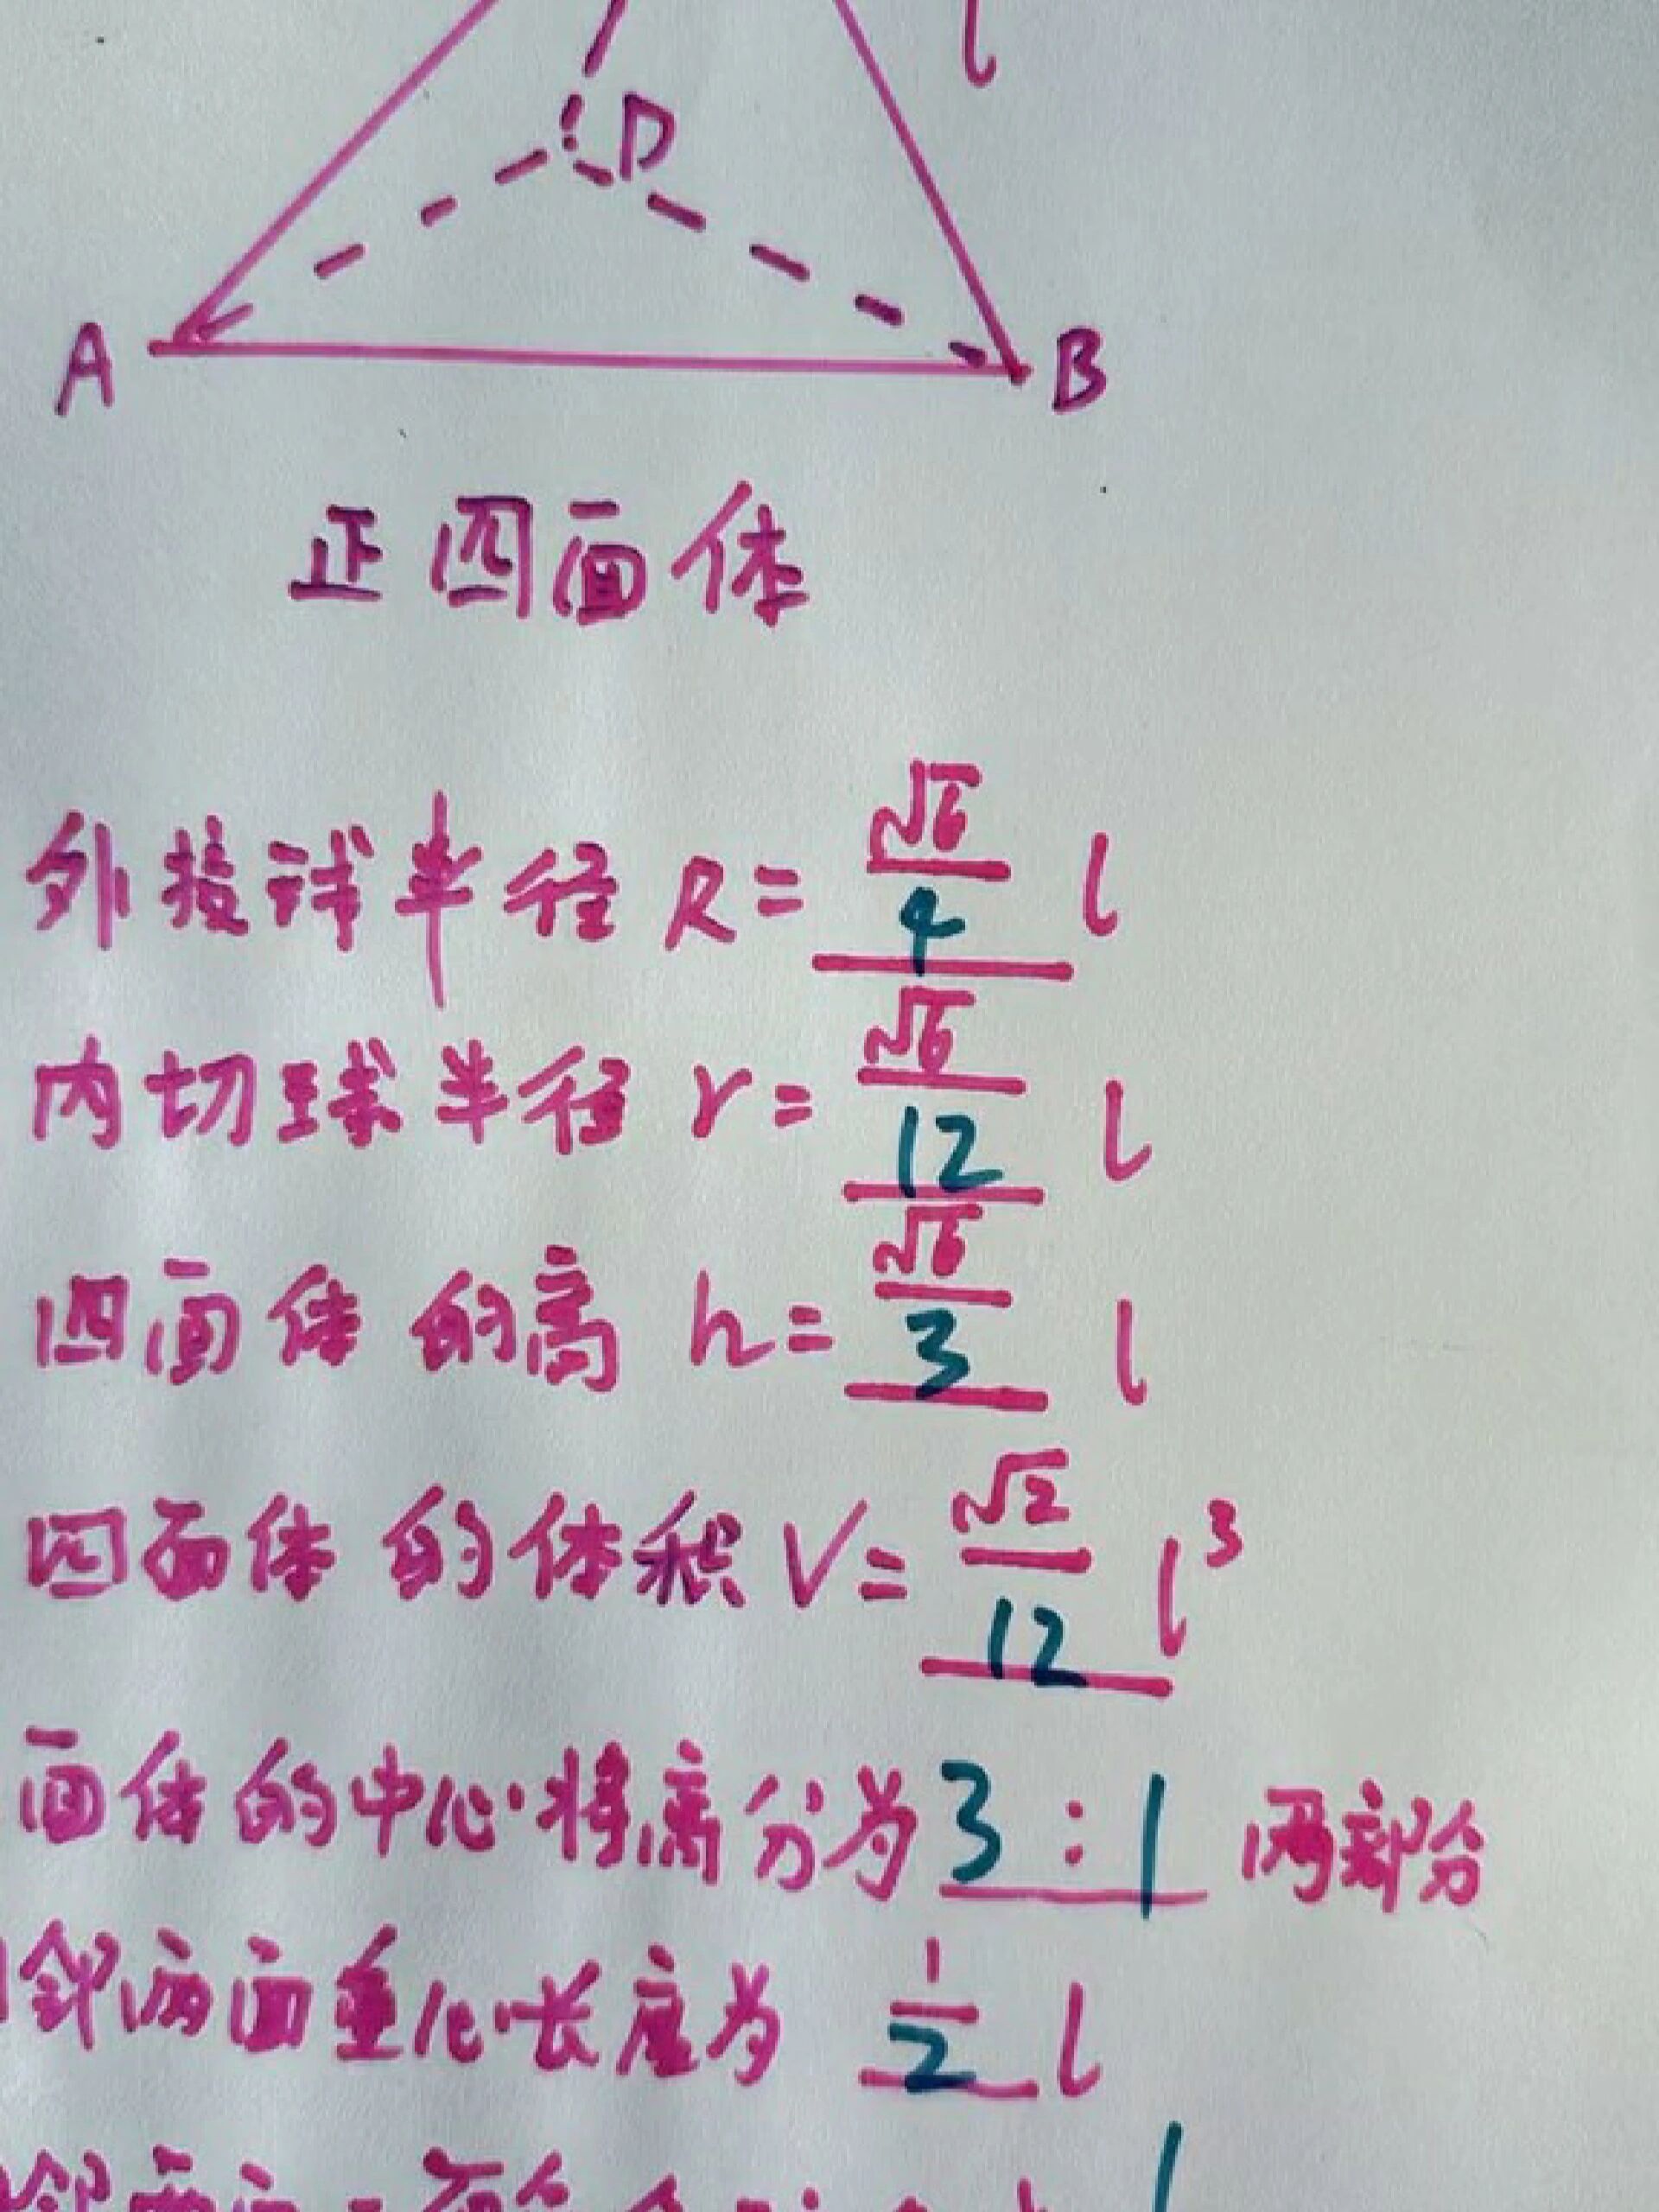 l
D
A B
正四面体
外接球半径 R = √6/4 l
内切球半径 r = √6/12 l
四面体的高 h = √6/3 l
四面体的体积 V = √2/12 l³
面体的中心将高分为 3 : 1 两部分
邻两面重心长度为 1/2 l
邻两面